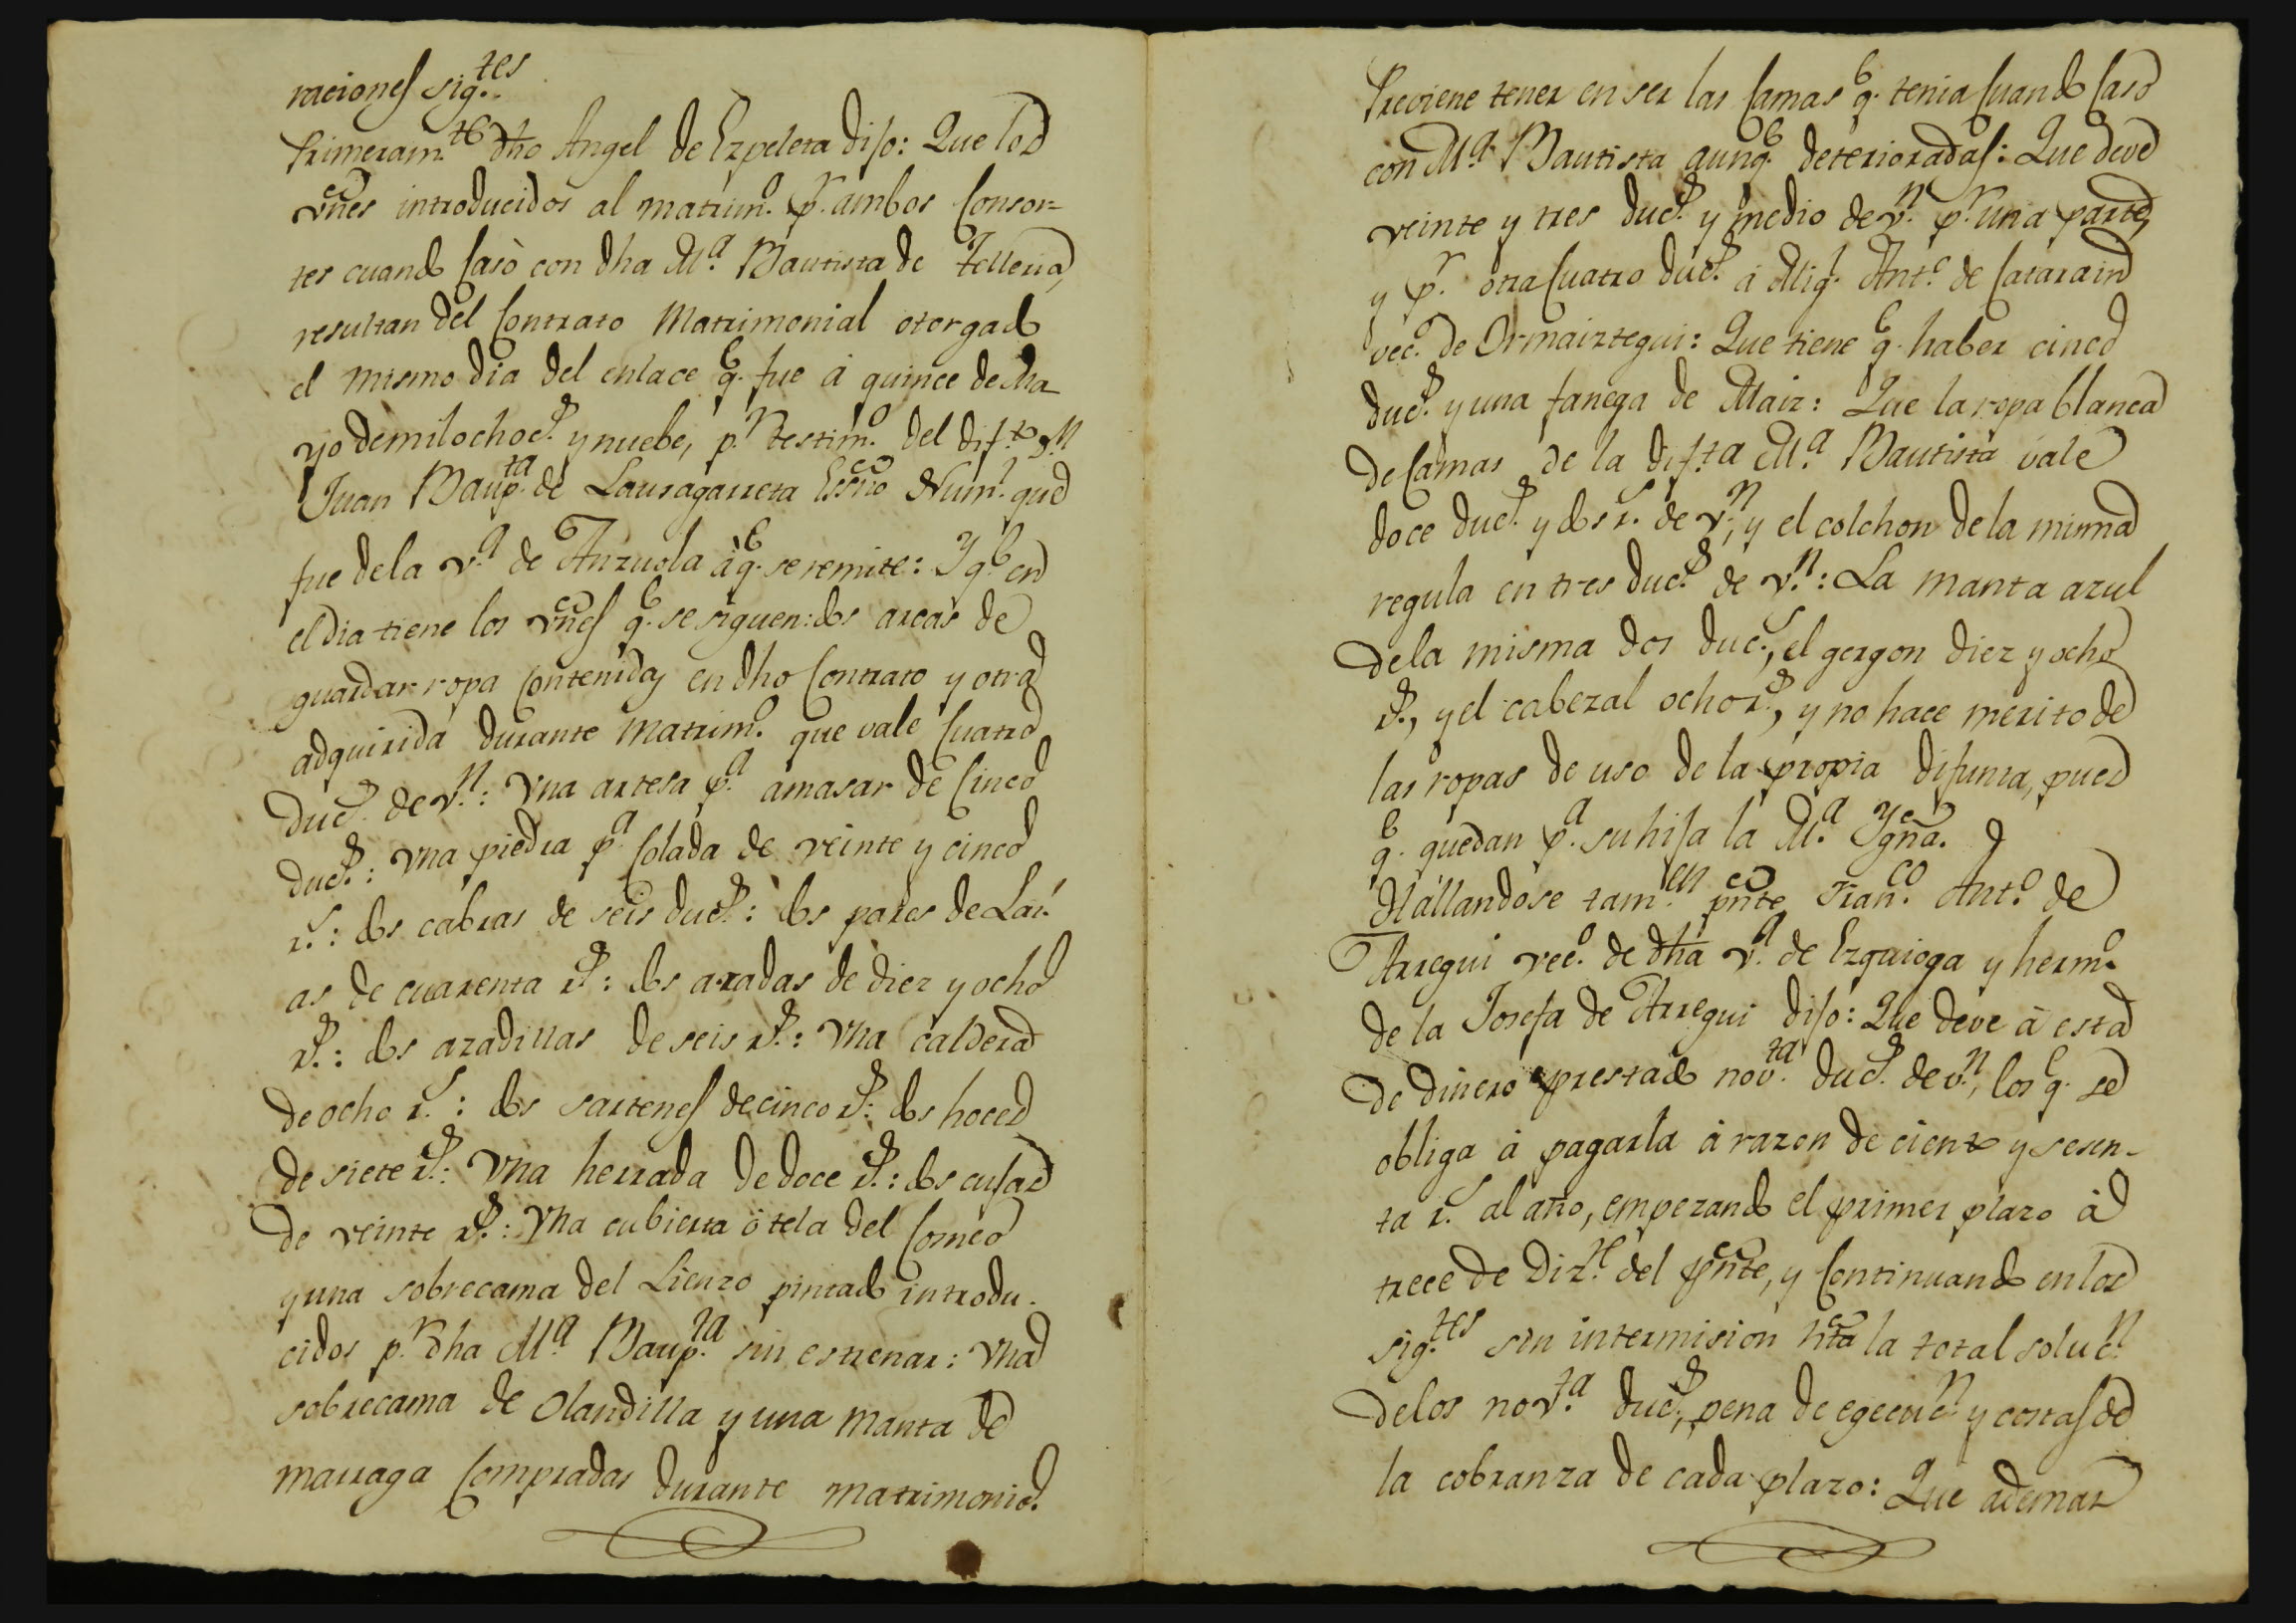 raciones sig.tes
Primeram.te dho Angel de Ezpeleta dijo: Que los
vnes introducidos al matrim.o p.r ambos Conson=
tes cuando Casò con dha M.a Bautista de Telleria,
resultan del Contrato Matrimonial otorgado
el mismo dia del enlace q.e fue á quince de Ma
yo de mil ochoc.s y nuebe, p.r testim.o del dif.to D.n
Juan Baup.ta de Lauragarreta Essno Num.l que
fue de la v.a de Anzuola à q.e se remite: Y q.e en
el dia tiene los vnes q.e se siguen: dos arcas de
guardar ropa contenidas en dho Contrato y otra
adquirida durante Matrim.o que vale Cuatro
Duc.s de v.n: Vna artesa p.a amasar de Cinco
duc.s: Vna piedra p.a Colada de veinte y cinco
r.s: dos cabras de seis duc.s: dos pares de Lai-
as de cuarenta r.s: dos azadas de diez y ocho
r.s: dos azadillas de seis r.s: Vna caldera
de ocho r.s: dos sartenes de cinco r.s: dos hoces
de siete r.s: Vna herrada de doce r.s: dos cujas
de veinte r.s: Vna cubierta ö tela del Comeo
y una sobrecama del Lienzo pintado introdu-
cidos p.r dha M.a Baup.ta sin estrenar: Vna
sobrecama de Olandilla y una Manta de
marraga Compradas durante matrimonio.
Previene tener en ser las Camas q.e tenia Cuando Caso
con M.a Bautista aunq.e deterioradas: Que deve
veinte y tres duc.s y medio de v.n p.r una parte,
y p.r otra Cuatro duc.s á Mig.l Ant.o de Cararain
vec.o de Ormaiztegui: Que tiene q.e haber cinco
duc.s y una fanega de Maiz: Que la ropa blanca
de Camas de la dif.ta M.a Bautista vale
doce duc.s y dos r.s de v.n; y el colchon de la misma
regula en tres duc.s de v.n: La manta azul
de la misma dos duc.s, el gergon diez y ocho
r.s, y el cabezal ocho r.s, y no hace merito de
las ropas de uso de la propia difunta, pues
q.e quedan p.a su hija la M.a Ygna.
Hallandose tam.en pnte Fran.co Ant.o de
Arregui vec.o de dha v.a de Ezquioga y herm.o
de la Josefa de Arregui dijo: Que deve à esta
de dinero prestado nov.ta duc.s de v.n, los q.e se
obliga à pagarla à razon de ciento y sesen-
ta r.s al año, empezando el primer plazo à
trece de Diz.e del pnte, y Continuando en los
sig.tes sin intermision hta la total soluc.n
de los nov.ta duc.s, pena de egecuc.n y costas de
la cobranza de cada plazo: Que ademas